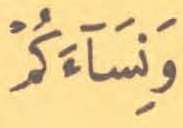 وَنِسَآءَكُمْ